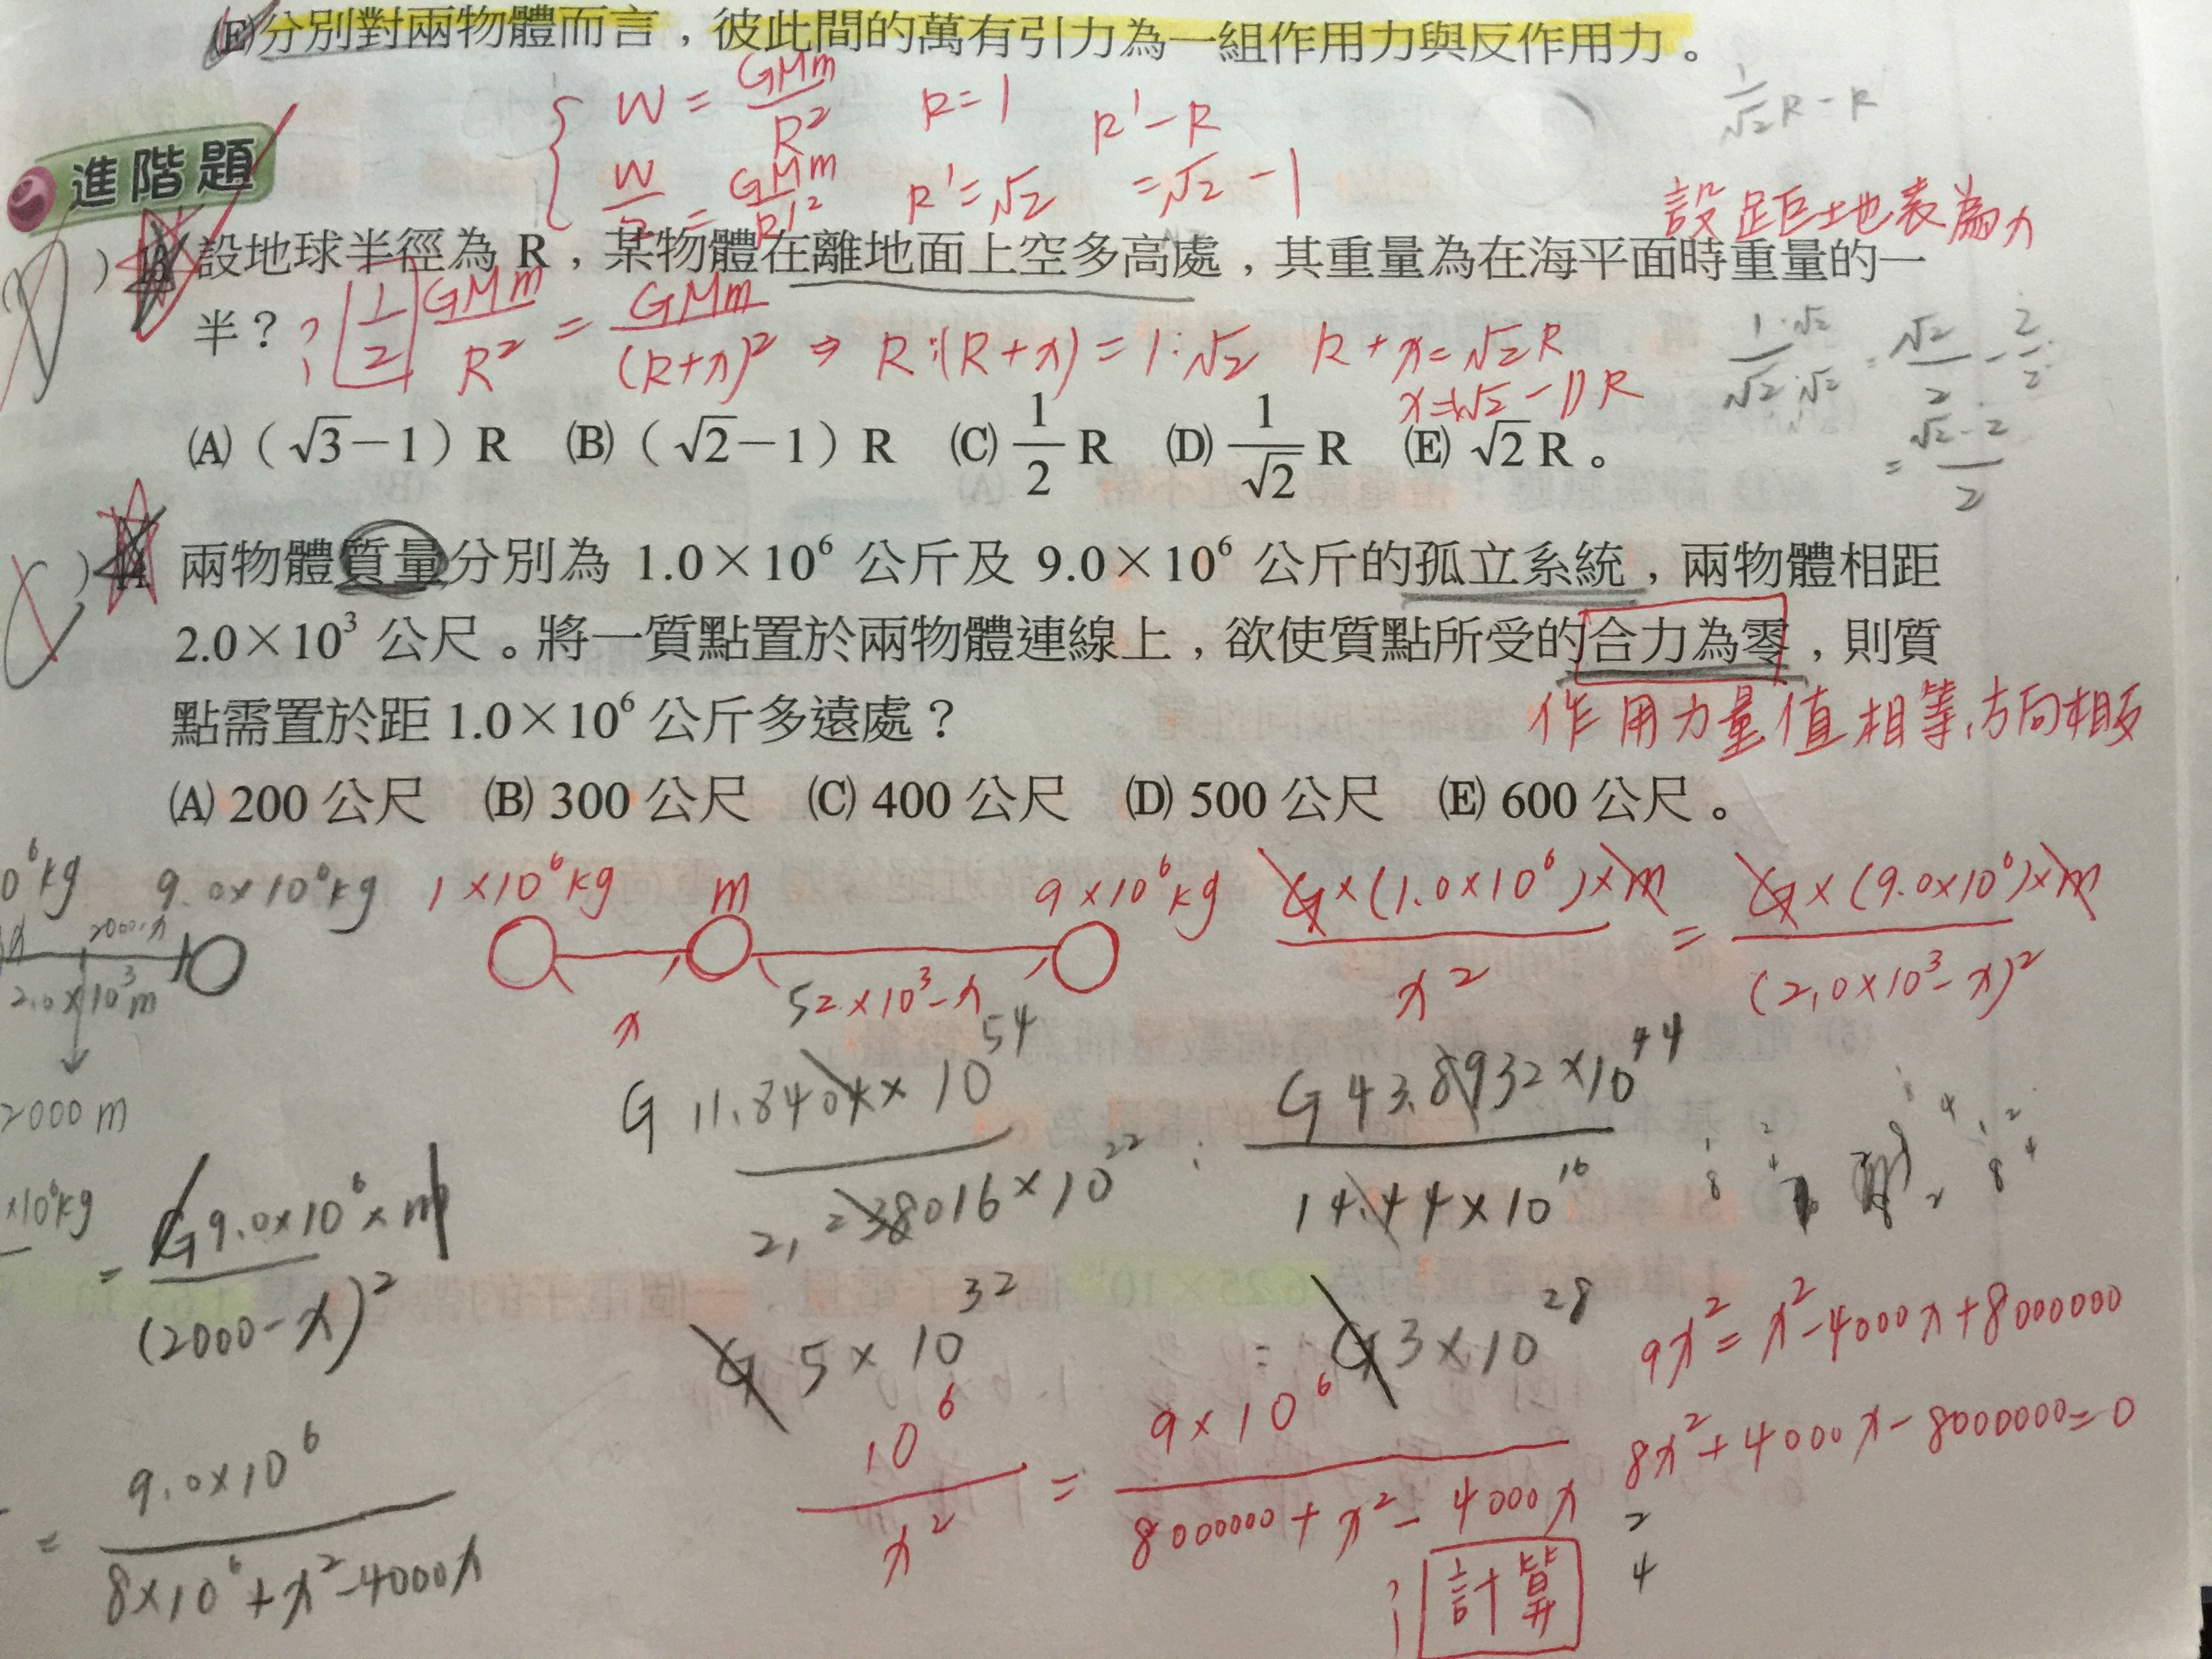 (E)分別對兩物體而言，彼此間的萬有引力為一組作用力與反作用力。
W = GMm/R² R=1 R'-R
W/2 = GMm/R'² R'=√2 =√2-1
1/√2 R-R
進階題
設距地表為x
)13 設地球半徑為 R，某物體在離地面上空多高處，其重量為在海平面時重量的一
半？
? 1/2 GMm/R² = GMm/(R+x)² ⇒ R:(R+x)=1:√2 R+x=√2R
x=(√2-1)R
1·√2/√2·√2 = √2/2 - 2/2
= √2-2/2
(A)（√3-1）R (B)（√2-1）R (C) 1/2 R (D) 1/√2 R (E) √2 R。
)14 兩物體質量分別為 1.0×10⁶ 公斤及 9.0×10⁶ 公斤的孤立系統，兩物體相距
2.0×10³ 公尺。將一質點置於兩物體連線上，欲使質點所受的合力為零，則質
點需置於距 1.0×10⁶ 公斤多遠處？
作用力量值相等,方向相反
(A) 200 公尺 (B) 300 公尺 (C) 400 公尺 (D) 500 公尺 (E) 600 公尺。
0⁶kg 9.0×10⁶kg
x 2000-x
2.0×10³m
2000m
1×10⁶kg m 9×10⁶kg
x 2×10³-x
G×(1.0×10⁶)×m/x² = G×(9.0×10⁶)×m/(2.0×10³-x)²
G 11.8404×10⁵⁴ : G 43.8932×10⁴⁴
14.44×10¹⁶
×10⁶kg = G9.0×10⁶×m/(2000-x)²
G 5×10³² = G 3×10²⁸
9x²=x²-4000x+8000000
8x²+4000x-8000000=0
10⁶/x² = 9×10⁶/8000000+x²-4000x
= 9.0×10⁶/8×10⁶+x²-4000x
2
4
? 計算